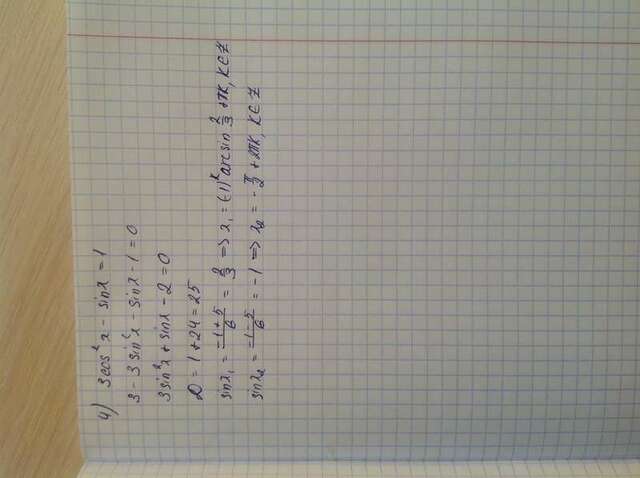 4) 3cos²x - sinx = 1
3 - 3sin²x - sinx - 1 = 0
3sin²x + sinx - 2 = 0
D = 1 + 24 = 25
sinx₁ = (-1+5)/6 = 2/3 => x₁ = (-1)ᵏ arcsin 2/3 + πk, k∈Z
sinx₂ = (-1-5)/6 = -1 => x₂ = -π/2 + 2πk, k∈Z